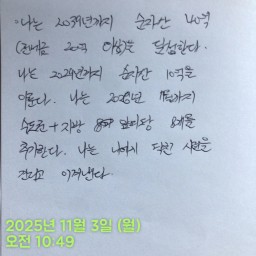 나는 2039년까지 순자산 40억
(전세금 20억 이상)을 달성한다.
나는 2029년까지 순자산 10억을
이룬다. 나는 2026년 까지
수도권 + 지방 8개를
추가한다. 나는 나에게 닥친 시련을
견디고 이겨낸다.
2025년 11월 3일 (월)
오전 10:49